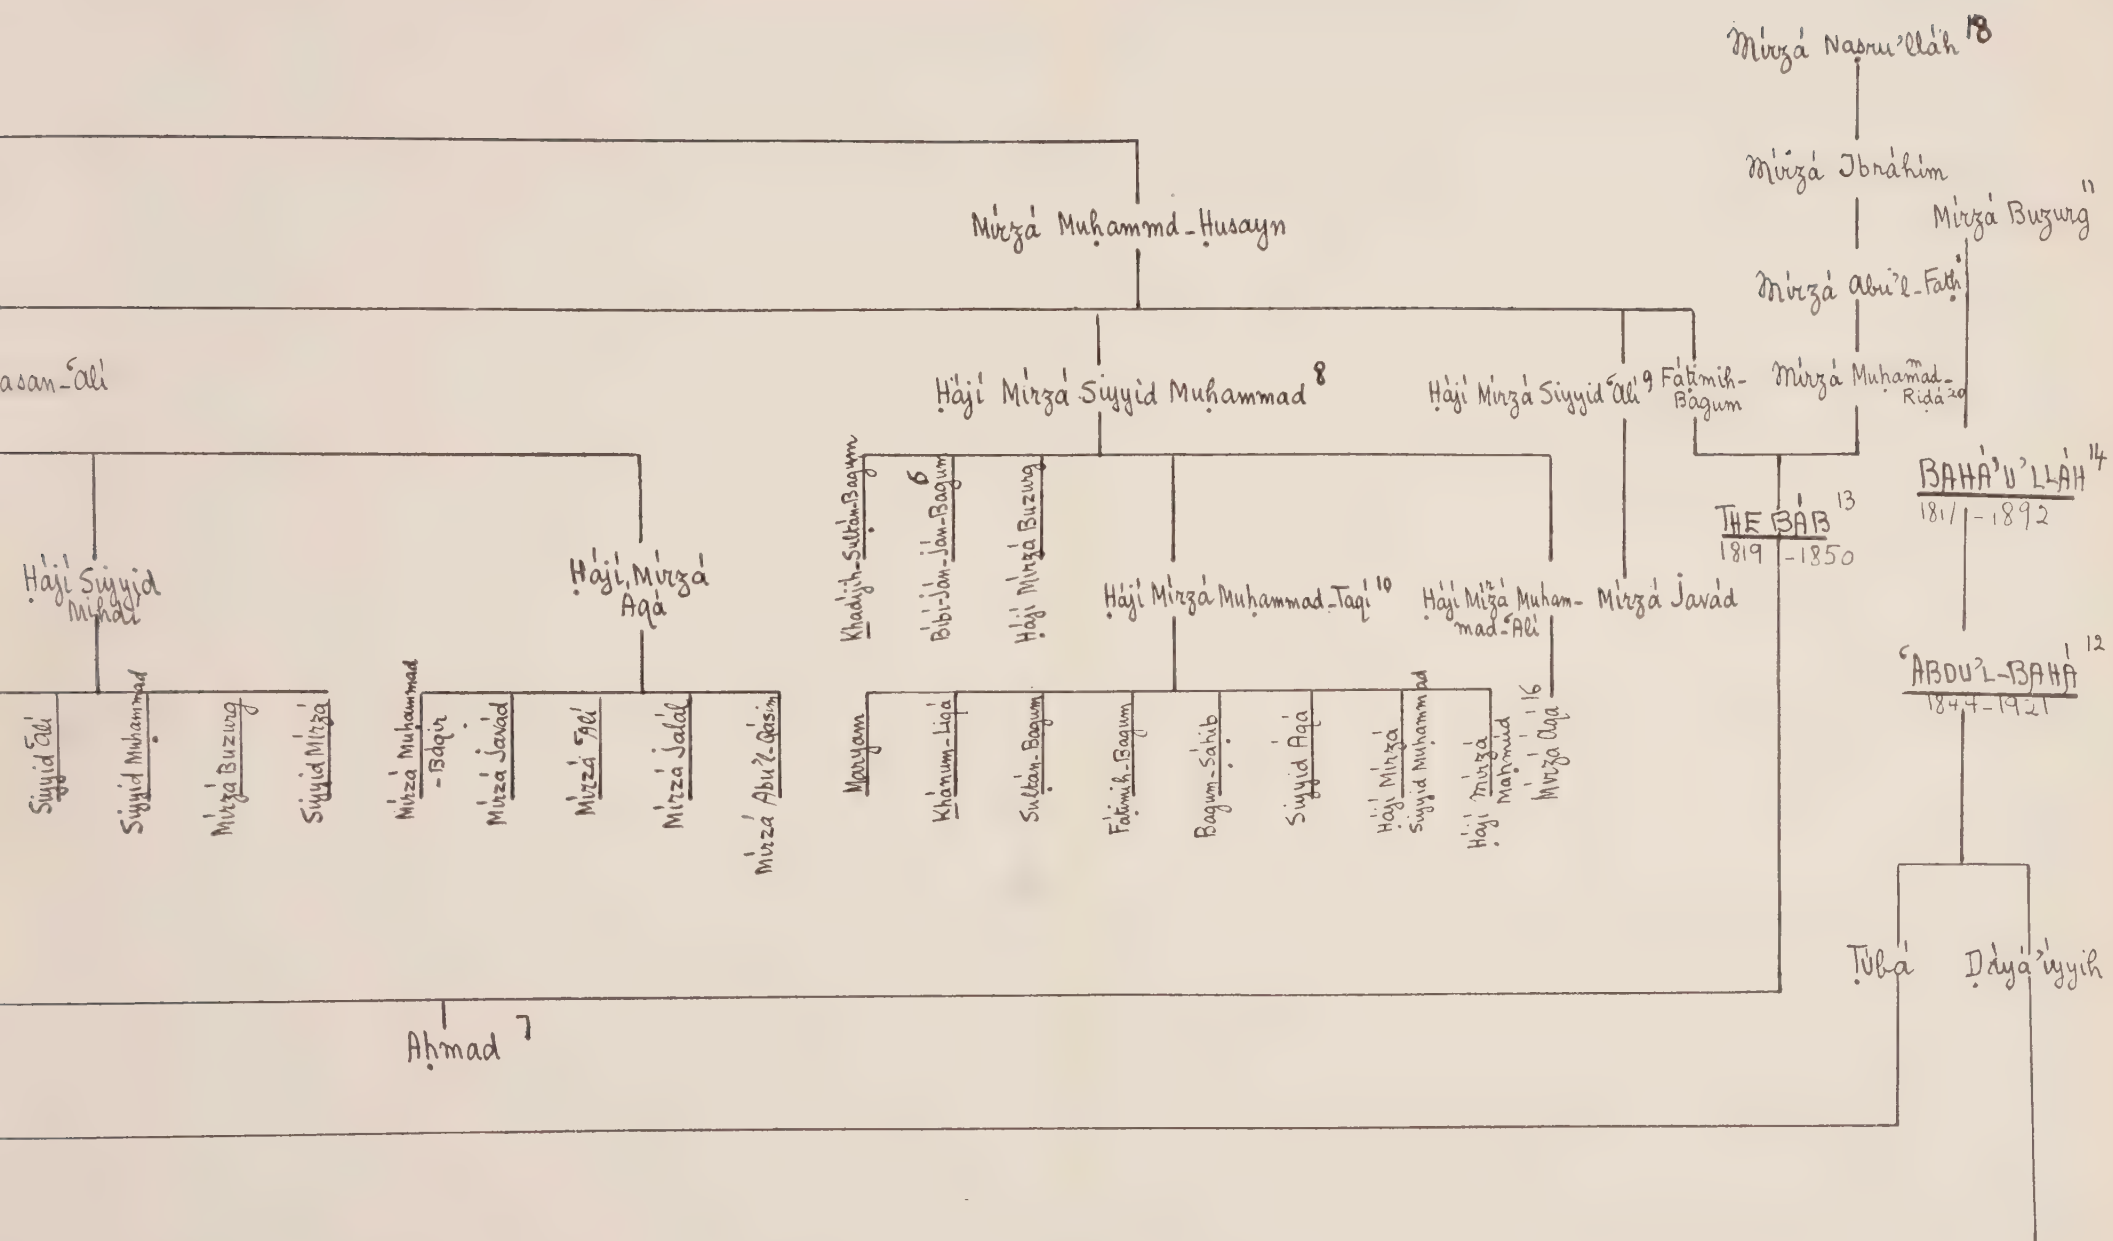 Mírzá Naṣru'lláh 18
Mírzá Ibráhím
Mírzá Buzurg 11
Mírzá Muḥammd-Ḥusayn
Mírzá Abu'l-Fatḥ
asan-‘Alí
Ḥájí Mírzá Siyyid Muḥammad 8
Ḥájí Mírzá Siyyid ‘Alí 9
Fáṭimih-
Bagum
Mírzá Muḥammad-
Riḍá 20
Khadíjih-Sulṭán-Bagum
Bíbí-Ján-Ján-Bagum 6
Ḥájí Mírzá Buzurg
BAHÁ'U'LLÁH 14
1817-1892
THE BÁB 13
1819-1850
Ḥájí Siyyid
Mihdí
Ḥájí Mírzá
Aqá
Ḥájí Mírzá Muḥammad-Taqí 10
Ḥájí Mírzá Muḥam-
mad-‘Alí
Mírzá Javád
‘ABDU'L-BAHÁ 12
1844-1921
Siyyid ‘Alí
Siyyid Muḥammad
Mírzá Buzurg
Siyyid Mírzá
Mírzá Muḥammad
-Báqir
Mírzá Javád
Mírzá ‘Alí
Mírzá Jalál
Mírzá Abu'l-Qásim
Maryam
Khánum-Liqá
Sulṭán-Bagum
Fáṭimih-Bagum
Bagum-Ṣáḥib
Siyyid Aqá
Ḥájí Mírzá
Siyyid Muḥammad
Ḥájí Mírzá
Maḥmúd
Mírzá Aqá 16
Ṭúbá
Ḍíyá'íyyih
Aḥmad 7